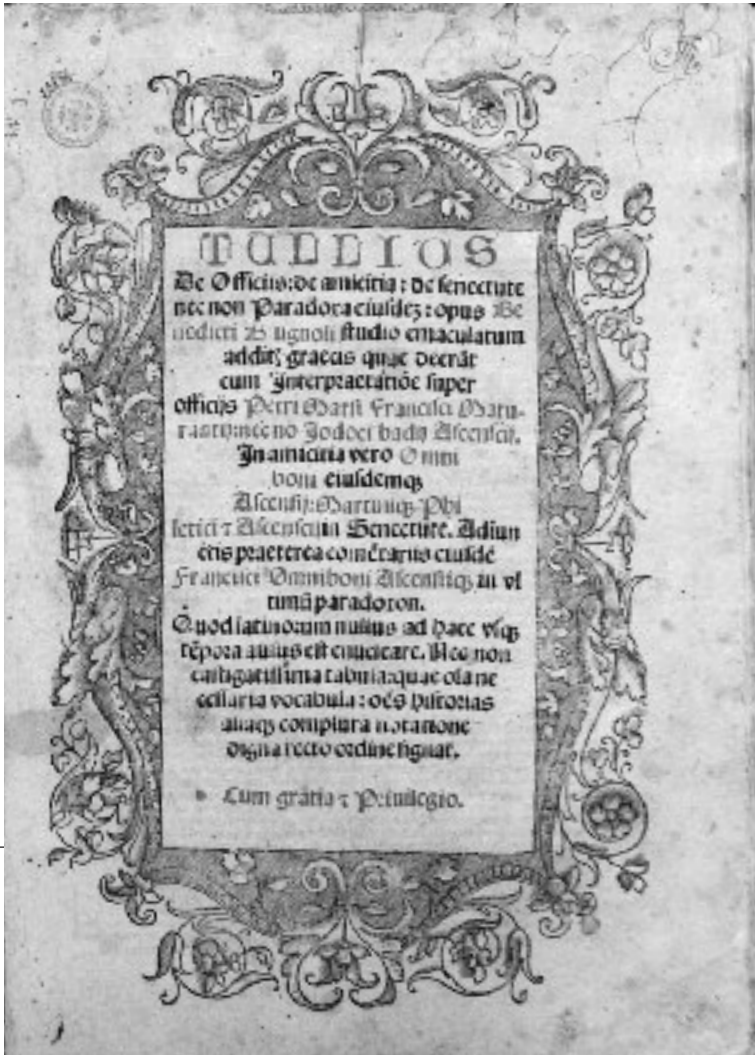 TULLIUS
De Officiis: de amicitia: de senectute
nec non Paradoxa eiusdeꝫ: opus Be
nedicti Brugnoli studio emaculatum
additꝭ graecis quae deerāt
cum Interpraetatiōe super
officiis Petri Marsi Francisci Matu-
rantij: nec nō Jodoci badij Ascensij.
In amicitia vero Omni
boni eiusdemqꝫ
Ascensij: Martiniqꝫ Phi
letici ⁊ Ascensij in Senectute. Adiun
ctis praeterea comētariis eiusdē
Francisci Omniboni Ascensiiqꝫ in vl
timū paradoxon.
Quod latinorum nullus ad haec vsqꝫ
tēpora ausus est enucleare. Nec non
castigatissima tabula: quae oīa ne
cessaria vocabula: oēs historias
aliaqꝫ complura notatione
digna recto ordine signat.
Cum gratia ⁊ Priuilegio.